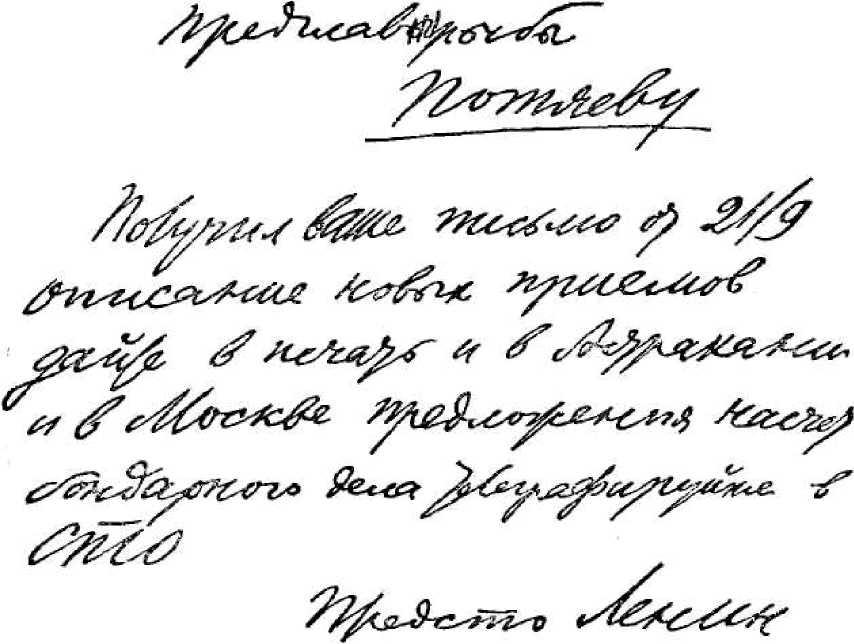 Предглаврыбы
Потяеву
Получил ваше письмо от 21/9
описание новых приемов
дайте в печать и в Астрахани
и в Москве предложения насчет
бондарного дела телеграфируйте в
СТО
Предсто Ленин